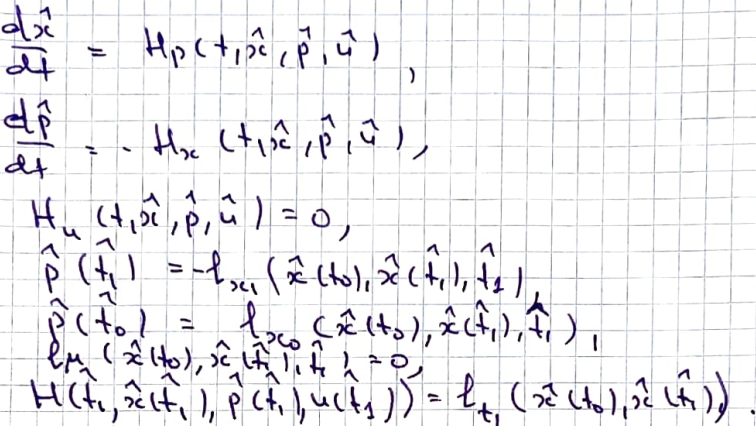 dx̂/dt = Hp(t,x̂,p̂,û),
dp̂/dt = - Hx(t,x̂,p̂,û),
Hu(t,x̂,p̂,û) = 0,
p̂(t̂1) = -lx1(x̂(t0),x̂(t̂1),t̂1),
p̂(t̂0) = lx0(x̂(t0),x̂(t̂1),t̂1),
lμ(x̂(t0),x̂(t̂1),t̂1) = 0,
H(t̂1,x̂(t̂1),p̂(t̂1),u(t̂1)) = lt1(x̂(t0),x̂(t̂1),).